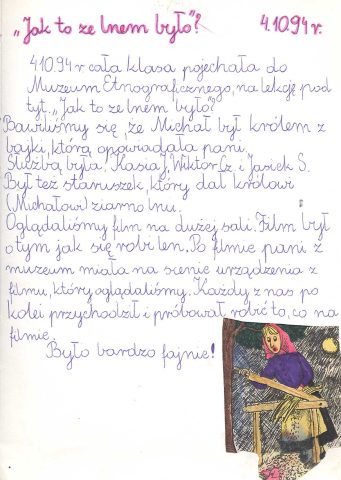 "Jak to ze lnem było"? 4.10.94 r.
4.10.94 r cała klasa pojechała do
Muzeum Etnograficznego, na lekcję pod
tyt. "Jak to ze lnem było"
Bawiliśmy się, że Michał był królem z
bajki, którą opowiadała pani.
Służbą była: Kasia J, Wiktor Cz. i Jasiek S.
Był też staruszek, który dał królowi
(Michałowi) ziarno lnu.
Oglądaliśmy film na dużej sali. Film był
o tym jak się robi len. Po filmie pani z
muzeum miała na scenie urządzenia z
filmu, który oglądaliśmy. Każdy z nas po
kolei przychodził i próbował robić to, co na
filmie.
Było bardzo fajnie!